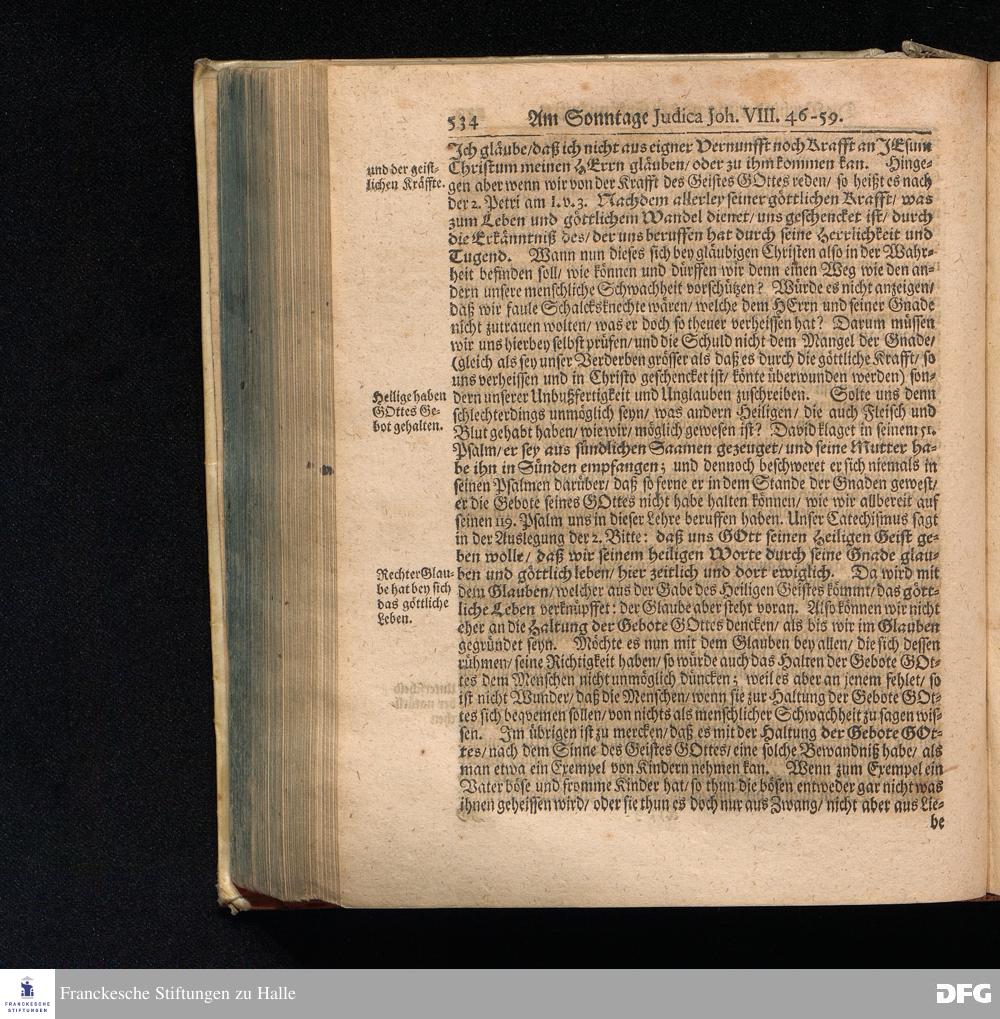 534 Am Sonntage Judica Joh. VIII. 46-59.
Ich gläube/ daß ich nicht aus eigner Vernunfft noch Krafft an JEsum
Christum meinen HErrn gläuben/ oder zu ihm kommen kan. Hinge-
und der geist-
lichen Kräffte.
gen aber wenn wir von der Krafft des Geistes GOttes reden/ so heißt es nach
der 2. Petri am I. v. 3. Nachdem allerley seiner göttlichen Krafft/ was
zum Leben und göttlichem Wandel dienet/ uns geschencket ist/ durch
die Erkänntniß des/ der uns beruffen hat durch seine Herrlichkeit und
Tugend. Wann nun dieses sich bey gläubigen Christen also in der Wahr-
heit befinden soll/ wie können und dürffen wir denn einen Weg wie den an-
dern unsere menschliche Schwachheit vorschützen? Würde es nicht anzeigen/
daß wir faule Schalcksknechte wären/ welche dem HErrn und seiner Gnade
nicht zutrauen wolten/ was er doch so theuer verheissen hat? Darum müssen
wir uns hierbey selbst prüfen/ und die Schuld nicht dem Mangel der Gnade/
(gleich als sey unser Verderben grösser als daß es durch die göttliche Krafft/ so
uns verheissen und in Christo geschencket ist/ könte überwunden werden) son-
Heilige haben
GOttes Ge-
bot gehalten.
dern unserer Unbußfertigkeit und Unglauben zuschreiben. Solte uns denn
schlechterdings unmöglich seyn/ was andern Heiligen/ die auch Fleisch und
Blut gehabt haben/ wie wir/ möglich gewesen ist? David klaget in seinem 51.
Psalm/ er sey aus sündlichen Saamen gezeuget/ und seine Mutter ha-
be ihn in Sünden empfangen; und dennoch beschweret er sich niemals in
seinen Psalmen darüber/ daß so ferne er in dem Stande der Gnaden gewest/
er die Gebote seines GOttes nicht habe halten können/ wie wir allbereit auf
seinen 119. Psalm uns in dieser Lehre beruffen haben. Unser Catechismus sagt
in der Auslegung der 2. Bitte: daß uns GOtt seinen Heiligen Geist ge-
ben wolle/ daß wir seinem heiligen Worte durch seine Gnade glau-
Rechter Glau-
be hat bey sich
das göttliche
Leben.
ben und göttlich leben/ hier zeitlich und dort ewiglich. Da wird mit
dem Glauben/ welcher aus der Gabe des Heiligen Geistes kömmt/ das gött-
liche Leben verknüpffet: der Glaube aber steht voran. Also können wir nicht
eher an die Haltung der Gebote GOttes dencken/ als bis wir im Glauben
gegründet seyn. Möchte es nun mit dem Glauben bey allen/ die sich dessen
rühmen/ seine Richtigkeit haben/ so würde auch das Halten der Gebote GOt-
tes dem Menschen nicht unmöglich düncken; weil es aber an jenem fehlet/ so
ist nicht Wunder/ daß die Menschen/ wenn sie zur Haltung der Gebote GOt-
tes sich beqvemen sollen/ von nichts als menschlicher Schwachheit zu sagen wis-
sen. Im übrigen ist zu mercken/ daß es mit der Haltung der Gebote GOt-
tes/ nach dem Sinne des Geistes GOttes/ eine solche Bewandniß habe/ als
man etwa ein Exempel von Kindern nehmen kan. Wenn zum Exempel ein
Vater böse und fromme Kinder hat/ so thun die bösen entweder gar nicht was
ihnen geheissen wird/ oder sie thun es doch nur aus Zwang/ nicht aber aus Lie-
be
FRANCKESCHE
STIFTUNGEN
Franckesche Stiftungen zu Halle
DFG